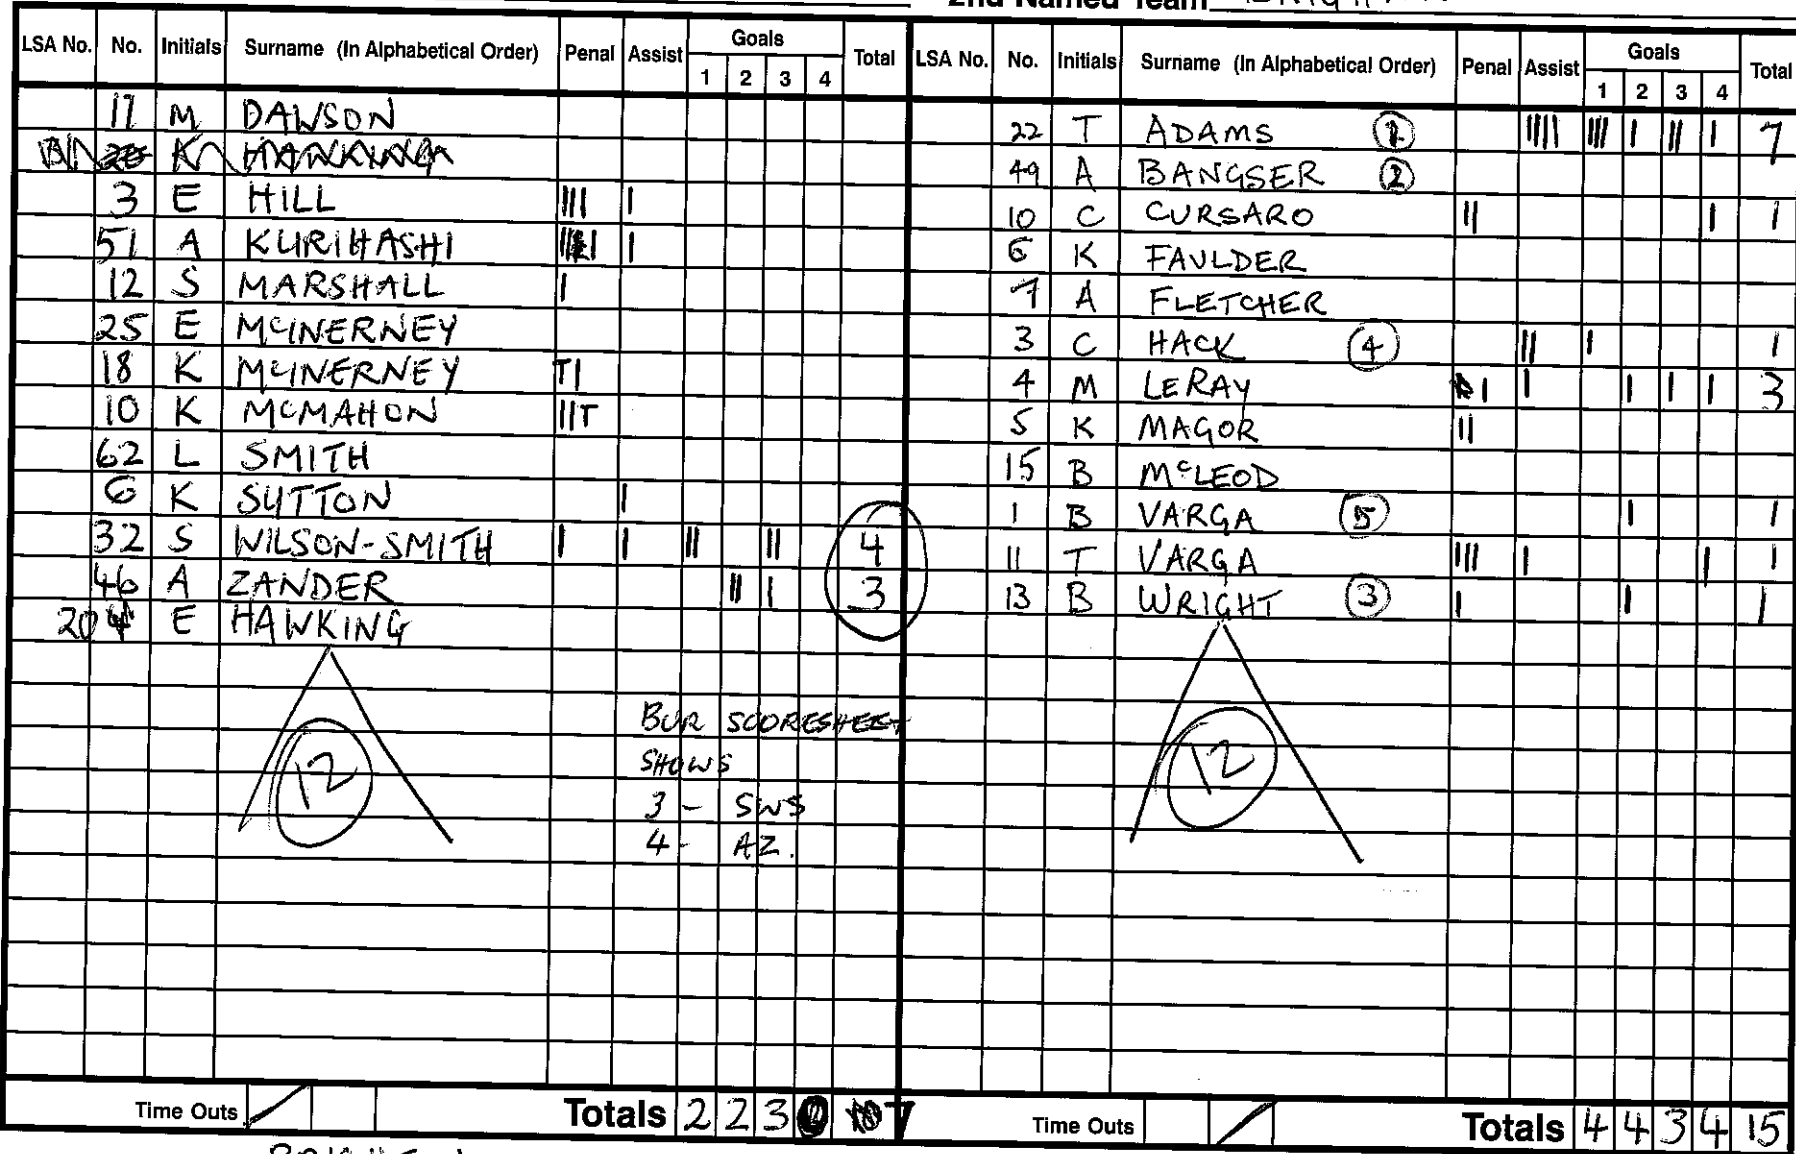 2nd Named Team
LSA No. No. Initials Surname (In Alphabetical Order) Penal Assist Goals 1 2 3 4 Total
17 M DAWSON
K
3 E HILL |||| |
51 A KURIHASHI |
12 S MARSHALL |
25 E McINERNEY
18 K McINERNEY T|
10 K McMAHON ||T
62 L SMITH
6 K SUTTON |
32 S WILSON-SMITH | | || || 4
46 A ZANDER || | 3
20 E HAWKING
12
BUR SCORESHEET
SHOWS
3 - SWS
4 - AZ.
Time Outs / Totals 2 2 3 7
LSA No. No. Initials Surname (In Alphabetical Order) Penal Assist Goals 1 2 3 4 Total
22 T ADAMS 1 |||| | || | 7
49 A BANGSER 2
10 C CURSARO || | 1
6 K FAULDER
7 A FLETCHER
3 C HACK 4 || | 1
4 M LERAY | | | | | 3
5 K MAGOR ||
15 B McLEOD
1 B VARGA 5 | 1
11 T VARGA ||| | | 1
13 B WRIGHT 3 | | 1
12
Time Outs / Totals 4 4 3 4 15